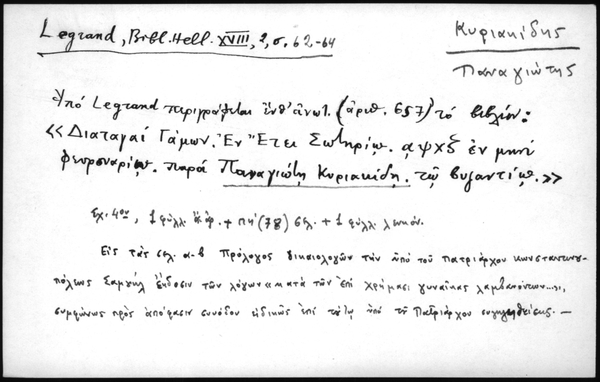 Legrand, Bibl. Hell. XVIII, 2, σ. 62-64
Κυριακίδης
Παναγιώτης
Ὑπό Legrand περιγράφεται ἐνθ' ἀνωτ. (ἀριθ. 657) τό βιβλίον:
«Διαταγαί Γάμων. Ἐν Ἔτει Σωτηρίῳ. αψχξ ἐν μηνί
φευρουαρίῳ. παρά Παναγιώτῃ Κυριακίδῃ. τῷ βυζαντίῳ.»
Σχ. 4ον, 1 φύλλ. + πη' (78) σελ. + 1 φύλλ. λευκόν.
Εἰς τάς σελ. α-β Πρόλογος δικαιολογῶν τήν ὑπό τοῦ πατριάρχου Κωνσταντινου-
πόλεως Σαμουήλ ἔκδοσιν τῶν λόγων «κατά τῶν ἐπί χρήμασι γυναῖκας λαμβανόντων...»,
συμφώνως πρός ἀπόφασιν συνόδου εἰδικῶς ἐπί τούτῳ ὑπό τοῦ Πατριάρχου συγκληθείσης. —